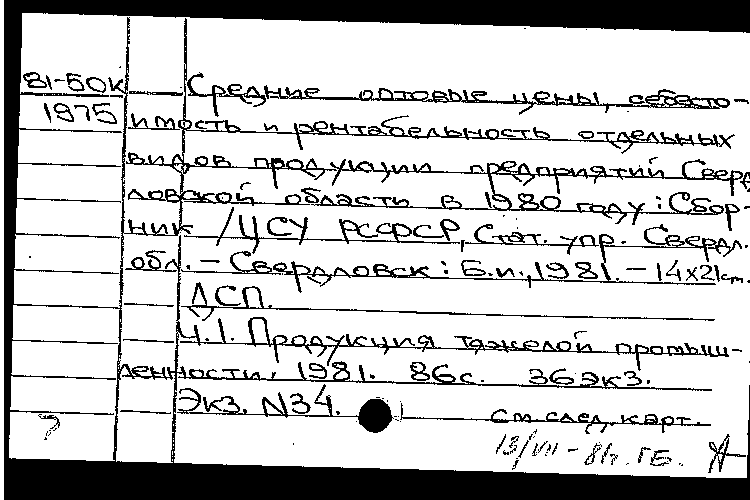 81-50к Средние оптовые цены, себесто-
1975 имость и рентабельность отдельных
видов продукции предприятий Сверд
ловской области в 1980 году: Сбор-
ник /ЦСУ РСФСР, Стат. упр. Свердл.
обл. - Свердловск: Б.и., 1981. - 14х21 см.
ДСП.
Ч.1. Продукция тяжелой промыш-
ленности, 1981. 86 с. 36 экз.
Экз. N34.
См. след. карт.
13/VII - 81г. ГБ.